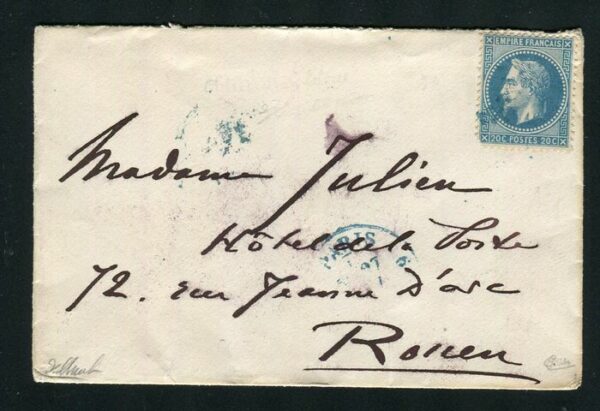 EMPIRE FRANÇAIS
20C POSTES 20C
Madame Julien
Hôtel de la Poste
PARIS
72. rue Jeanne D'arc
Rouen